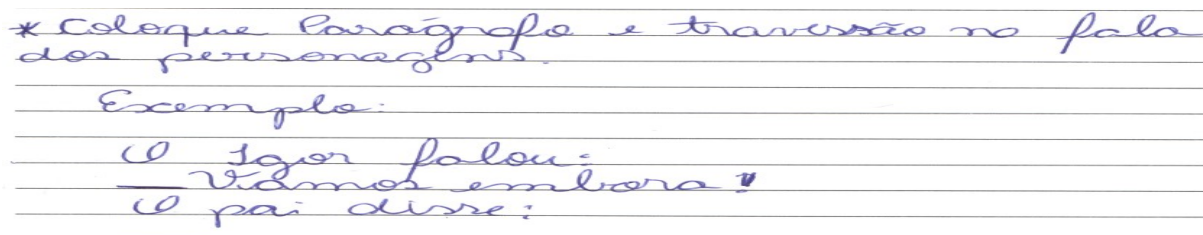 * Coloque Parágrafo e travessão na fala
dos personagens.
Exemplo:
O Igor falou:
— Vamos embora!
O pai disse: